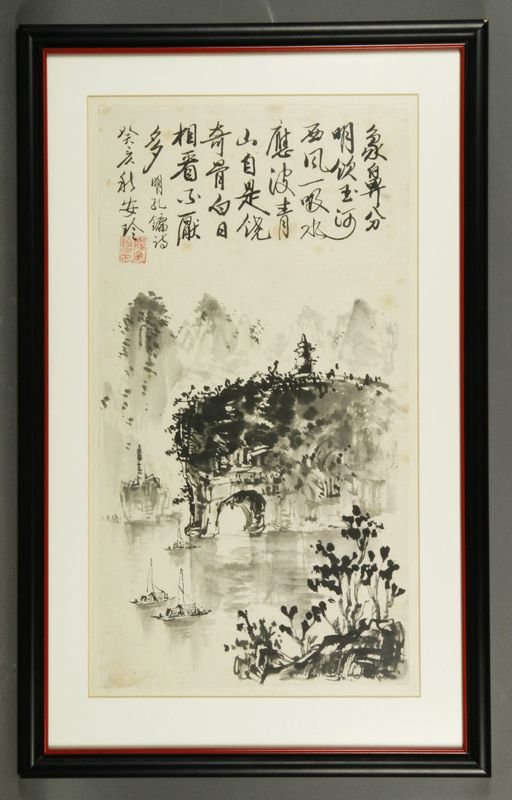 象鼻分
明饮玉河
西风一吸水
應波青
山自是饶
奇骨白日
相看不厭
多 明孔镛诗
癸亥秋安玲